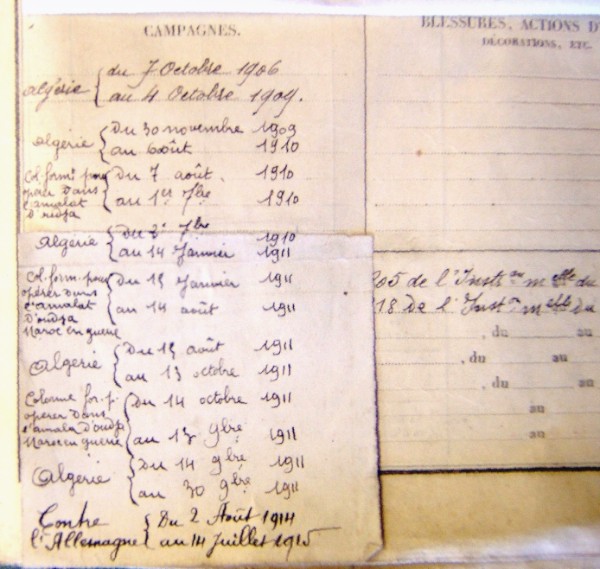 CAMPAGNES.
BLESSURES, ACTIONS D'
DÉCORATIONS, ETC.
Algérie { du 7 Octobre 1906
au 4 Octobre 1909.
Algérie { Du 30 novembre 1909
au 6 août 1910
Col. form. pour { Du 7 août. 1910
opérer dans
l'amalat au 1er 7bre 1910
d'Oudjda
Algérie { Du 2 7bre 1910
au 14 Janvier 1911
Col. form. pour { Du 15 Janvier 1911
opérer dans
l'amalat au 14 août 1911
d'oudja
Maroc en guerre
205 de l'Inst on m elle du
218 de l'Inst on m elle du
Algérie { Du 15 août 1911
au 13 octobre 1911
Colonne for. p. { Du 14 octobre 1911
opérer dans
l'amala d'oudj
Maroc en guerre au 13 9bre 1911
Algérie { Du 14 9bre 1911
au 30 9bre 1911
Contre { Du 2 Août 1914
l'Allemagne au 14 Juillet 1915
, du au
, du au
, du au
au
au